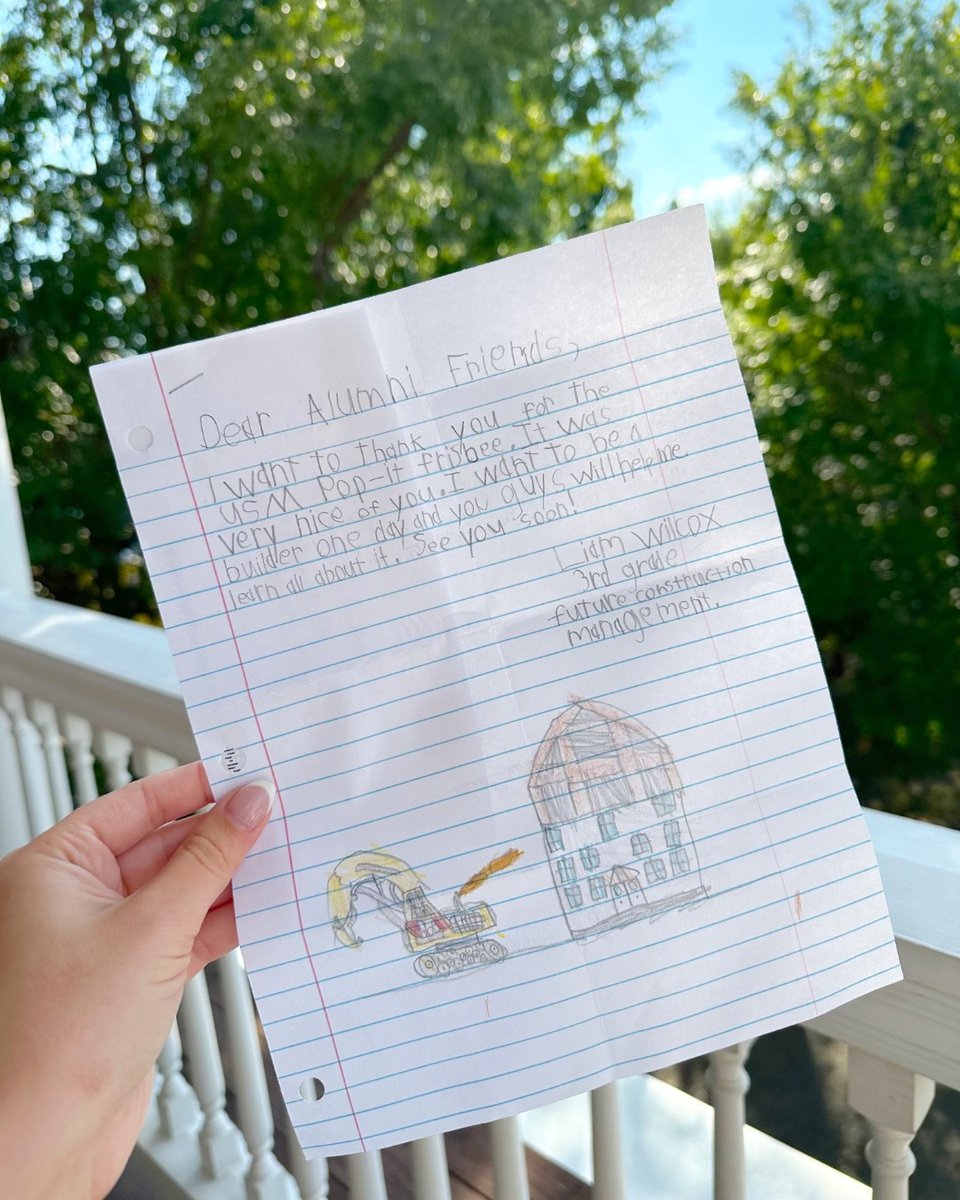 Dear Alumni Friends,
I want to thank you for the
USM Pop-it frisbee. It was
very nice of you. I want to be a
builder one day and you guys will help me
learn all about it. See you soon!
Liam Wilcox
3rd grade
future construction
management.